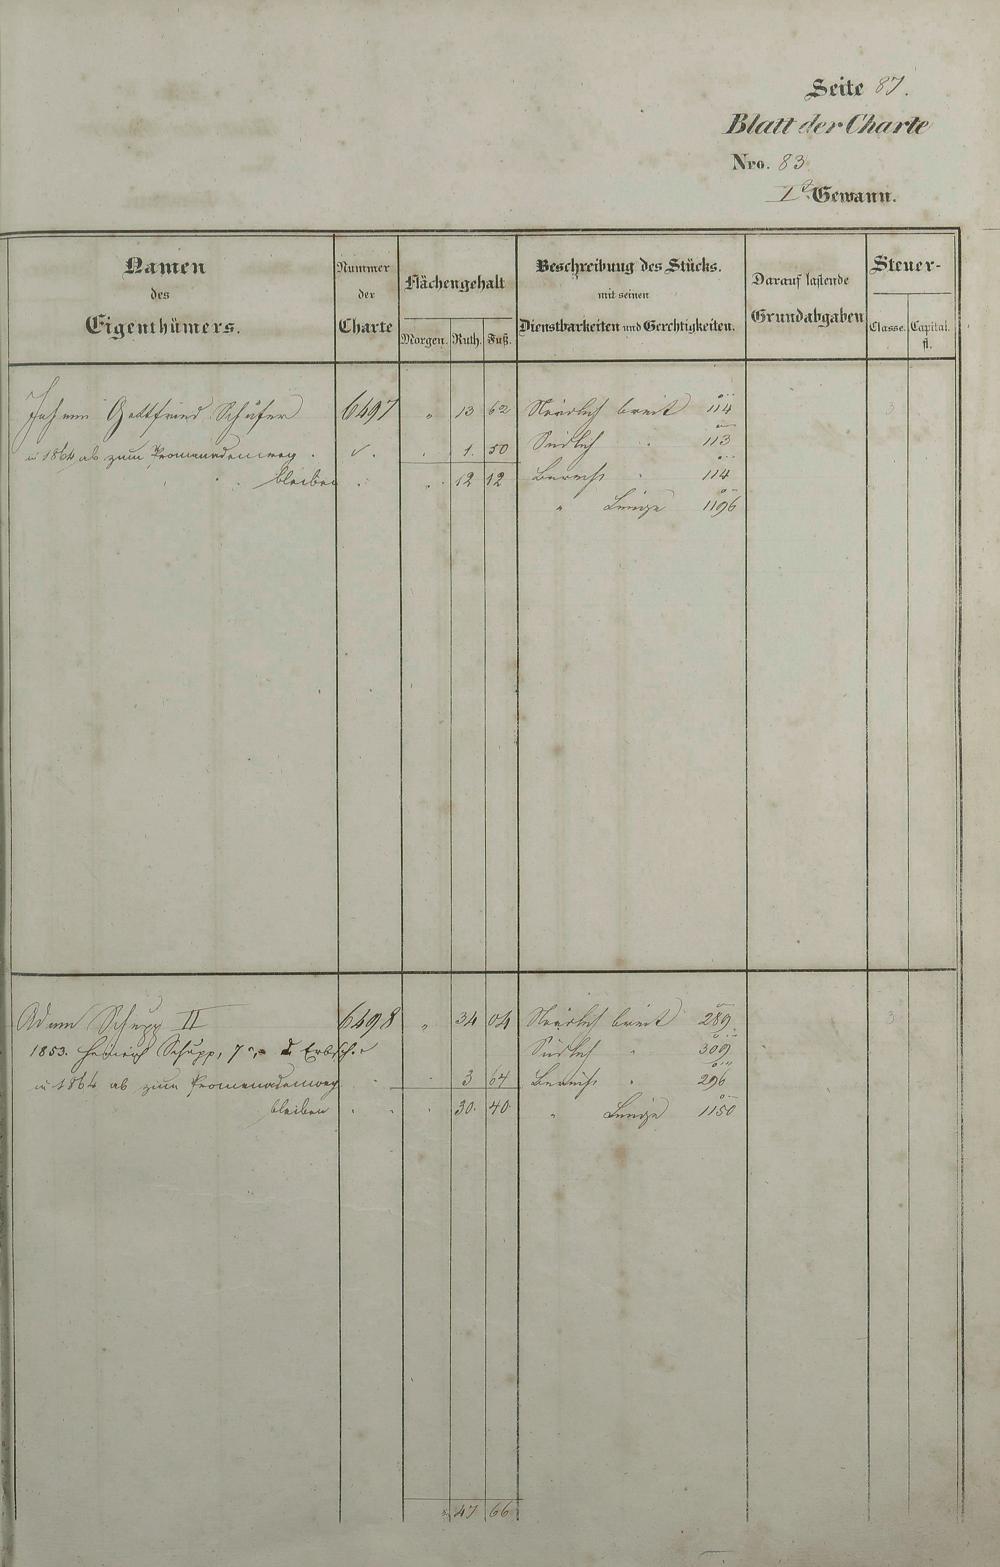 Seite 87.
Blatt der Charte
Nro. 83
Iᵗᵉ Gewann.
Namen des Eigenthümers.
Nummer der Charte
Flächengehalt
Morgen. Ruth. Fuß.
Beschreibung des Stücks. mit seinen Dienstbarkeiten und Gerechtigkeiten.
Darauf lastende Grundabgaben
Steuer-
Classe. Capital. fl.
Johann Gottfried Schäfer 6497 " 13 62 Nördlich breit 114 3
in 1864 ab zum Promenadenweg . 1. 50 Südlich " 113
bleiben 12 12 Berecht " 114
" Länge 1196
Adam Schupp II 6498 " 34 04 Nördlich breit 289 3
1853. Heinrich Schupp, 7 Erbsch. Südlich " 309
in 1864 ab zum Promenadenweg 3 64 Berecht " 296
bleiben 30. 40 " Länge 1150
47 66